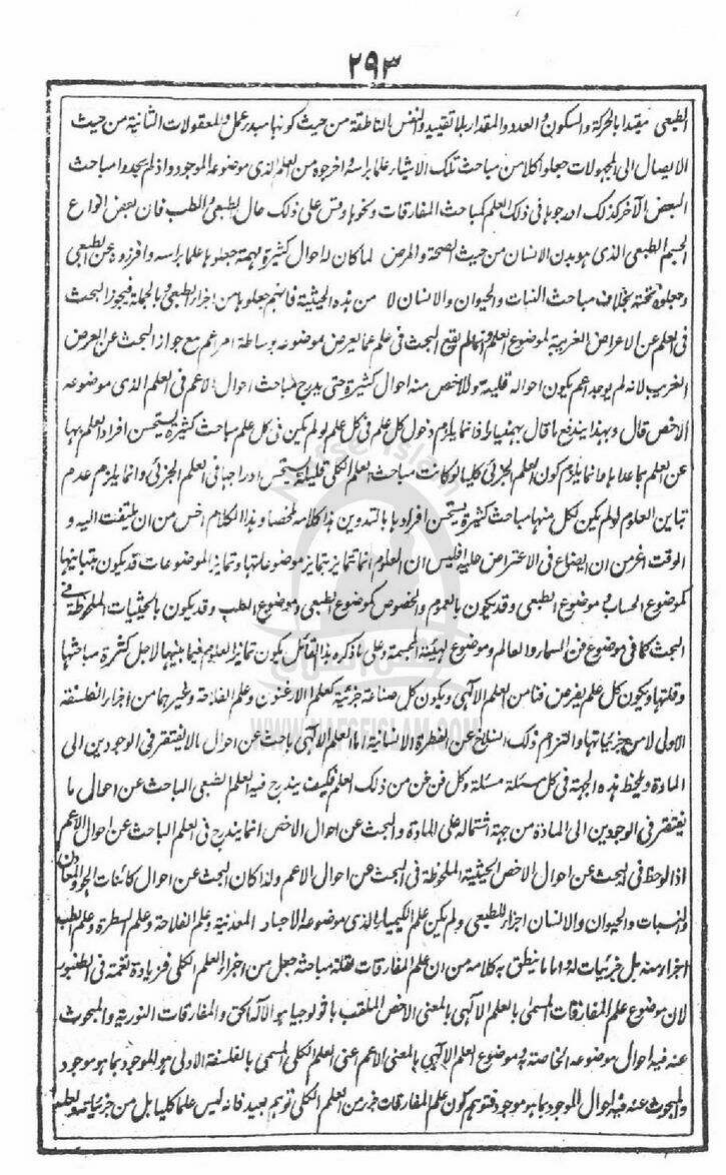 ٢٩٣
الطبعی مقیدا بالحركة والسكون والعدد والمقدار بلا تقييد والنفس الناطقة من حيث كونها مبدر عمل والمعقولات الثانية من حيث
الايصال الى المجهولات جعلوا كلا من مباحث تلك الاشيار علما براسه واخرجوه من العلم الذى موضوعه الموجود واذ لم يجدوا مباحث
البعض الآخر كذلك ادرجوها فى ذلك العلم كمباحث المفارقات ونحوها وقس على ذلك حال الطبعى والطب فان بعض انواع
الجسم الطبعى الذى هو بدن الانسان من حيث الصحة والمرض لما كان له احوال كثيرة مهمة جعلوها علما براسه وافرزوه عن الطبعى
وجعلوه تحته بخلاف مباحث النبات والحيوان والانسان لا من هذه الحيثية فانهم جعلوها من اجزار الطبعى وبالجملة فيجوز البحث
فى العلم عن الاعراض الغريبة لموضوع العلم وانما لم يقع البحث فى علم عما يعرض موضوعه بوساطة امر اعم مع جواز البحث عن العرض
الغريب لانه لم يوجد اعم يكون احواله قليلة وللاخص منه احوال كثيرة حتى يدرج مباحث احوال الاعم فى العلم الذى موضوعه
الاخص قال وبهذا يندفع ما قال بهمنيار فانما يلزم دخول كل علم فى كل علم لو لم يكن فى كل علم مباحث كثيرة يستحسن افراد العلم بها
عن العلم بما عداها وانما يلزم كون العلم الجزئى كليا لو كانت مباحث العلم الكلى قليلة يستحسن ادراجها فى العلم الجزئى وانما يلزم عدم
تباين العلوم لو لم يكن لكل منها مباحث كثيرة يستحسن افرادها بالتدوين هذا كلامه ملخصا وهذا الكلام اخس من ان يلتفت اليه و
الوقت اعز من ان يضاع فى الاعتراض عليه افليس ان العلوم انما تتمايز بتمايز موضوعاتها وتمايز الموضوعات قد يكون بتباينها
كموضوع الحساب وموضوع الطبعى وقد يكون بالعموم والخصوص كموضوع الطبعى وموضوع الطب وقد يكون بالحيثيات الملحوظة فى
البحث كما فى موضوع فن السمار والعالم وموضوع الهيئة المجسمة وعلى ما ذكره هذا القائل يكون تمايز العلوم فيما بينها لاجل كثرة مباحثها
وقلتها ويكون كل علم يفرض فنا من العلم الالهى ويكون كل صناعة جزئية كعلم الارغنون وعلم الفلاحة وغيرهما من اجزار الفلسفة
الاولى لا من جزئياتها والتزام ذلك انسلاخ عن الفطرة الانسانية اما العلم الالهى باحث عن احوال ما لا يفتقر فى الوجودين الى
المادة ويلحظ هذه الجهة فى كل مسئلة مسئلة وكل فن فن من ذلك العلم فكيف يندرج فيه العلم الطبعى الباحث عن احوال ما
يفتقر فى الوجودين الى المادة من جهة اشتماله على المادة والبحث عن احوال الاخص انما يندرج فى العلم الباحث عن احوال الاعم
اذا لوحظ فى البحث عن احوال الاخص الحيثية الملحوظة فى البحث عن احوال الاعم ولذا كان البحث عن احوال كائنات الجو والمعادن
والنبات والحيوان والانسان اجزار للطبعى ولم يكن علم الكيميار الذى موضوعه الاجساد المعدنية وعلم الفلاحة وعلم البيطرة وعلم الطب
اجزار منه بل جزئيات له واما ما ينطق به كلامه من ان علم المفارقات لقلة مباحثه جعل من اجزار العلم الكلى فزيادة نغمة فى الطنبور
لان موضوع علم المفارقات المسمى بالعلم الالهى بالمعنى الاخص الملقب باثولوجيا هو الاله الحق والمفارقات النورية والمبحوث
عنه فيه احوال موضوعه الخاصة وموضوع العلم الالهى بالمعنى الاعم عنى العلم الكلى المسمى بالفلسفة الاولى هو الموجود بما هو موجود
والمبحوث عنه فيه احوال الموجود بما هو موجود فتوهم كون علم المفارقات جزر من العلم الكلى توهم بعيد فانه ليس علما كليا بل من جزئياته والعلم
WWW.NAFSEISLAM.COM